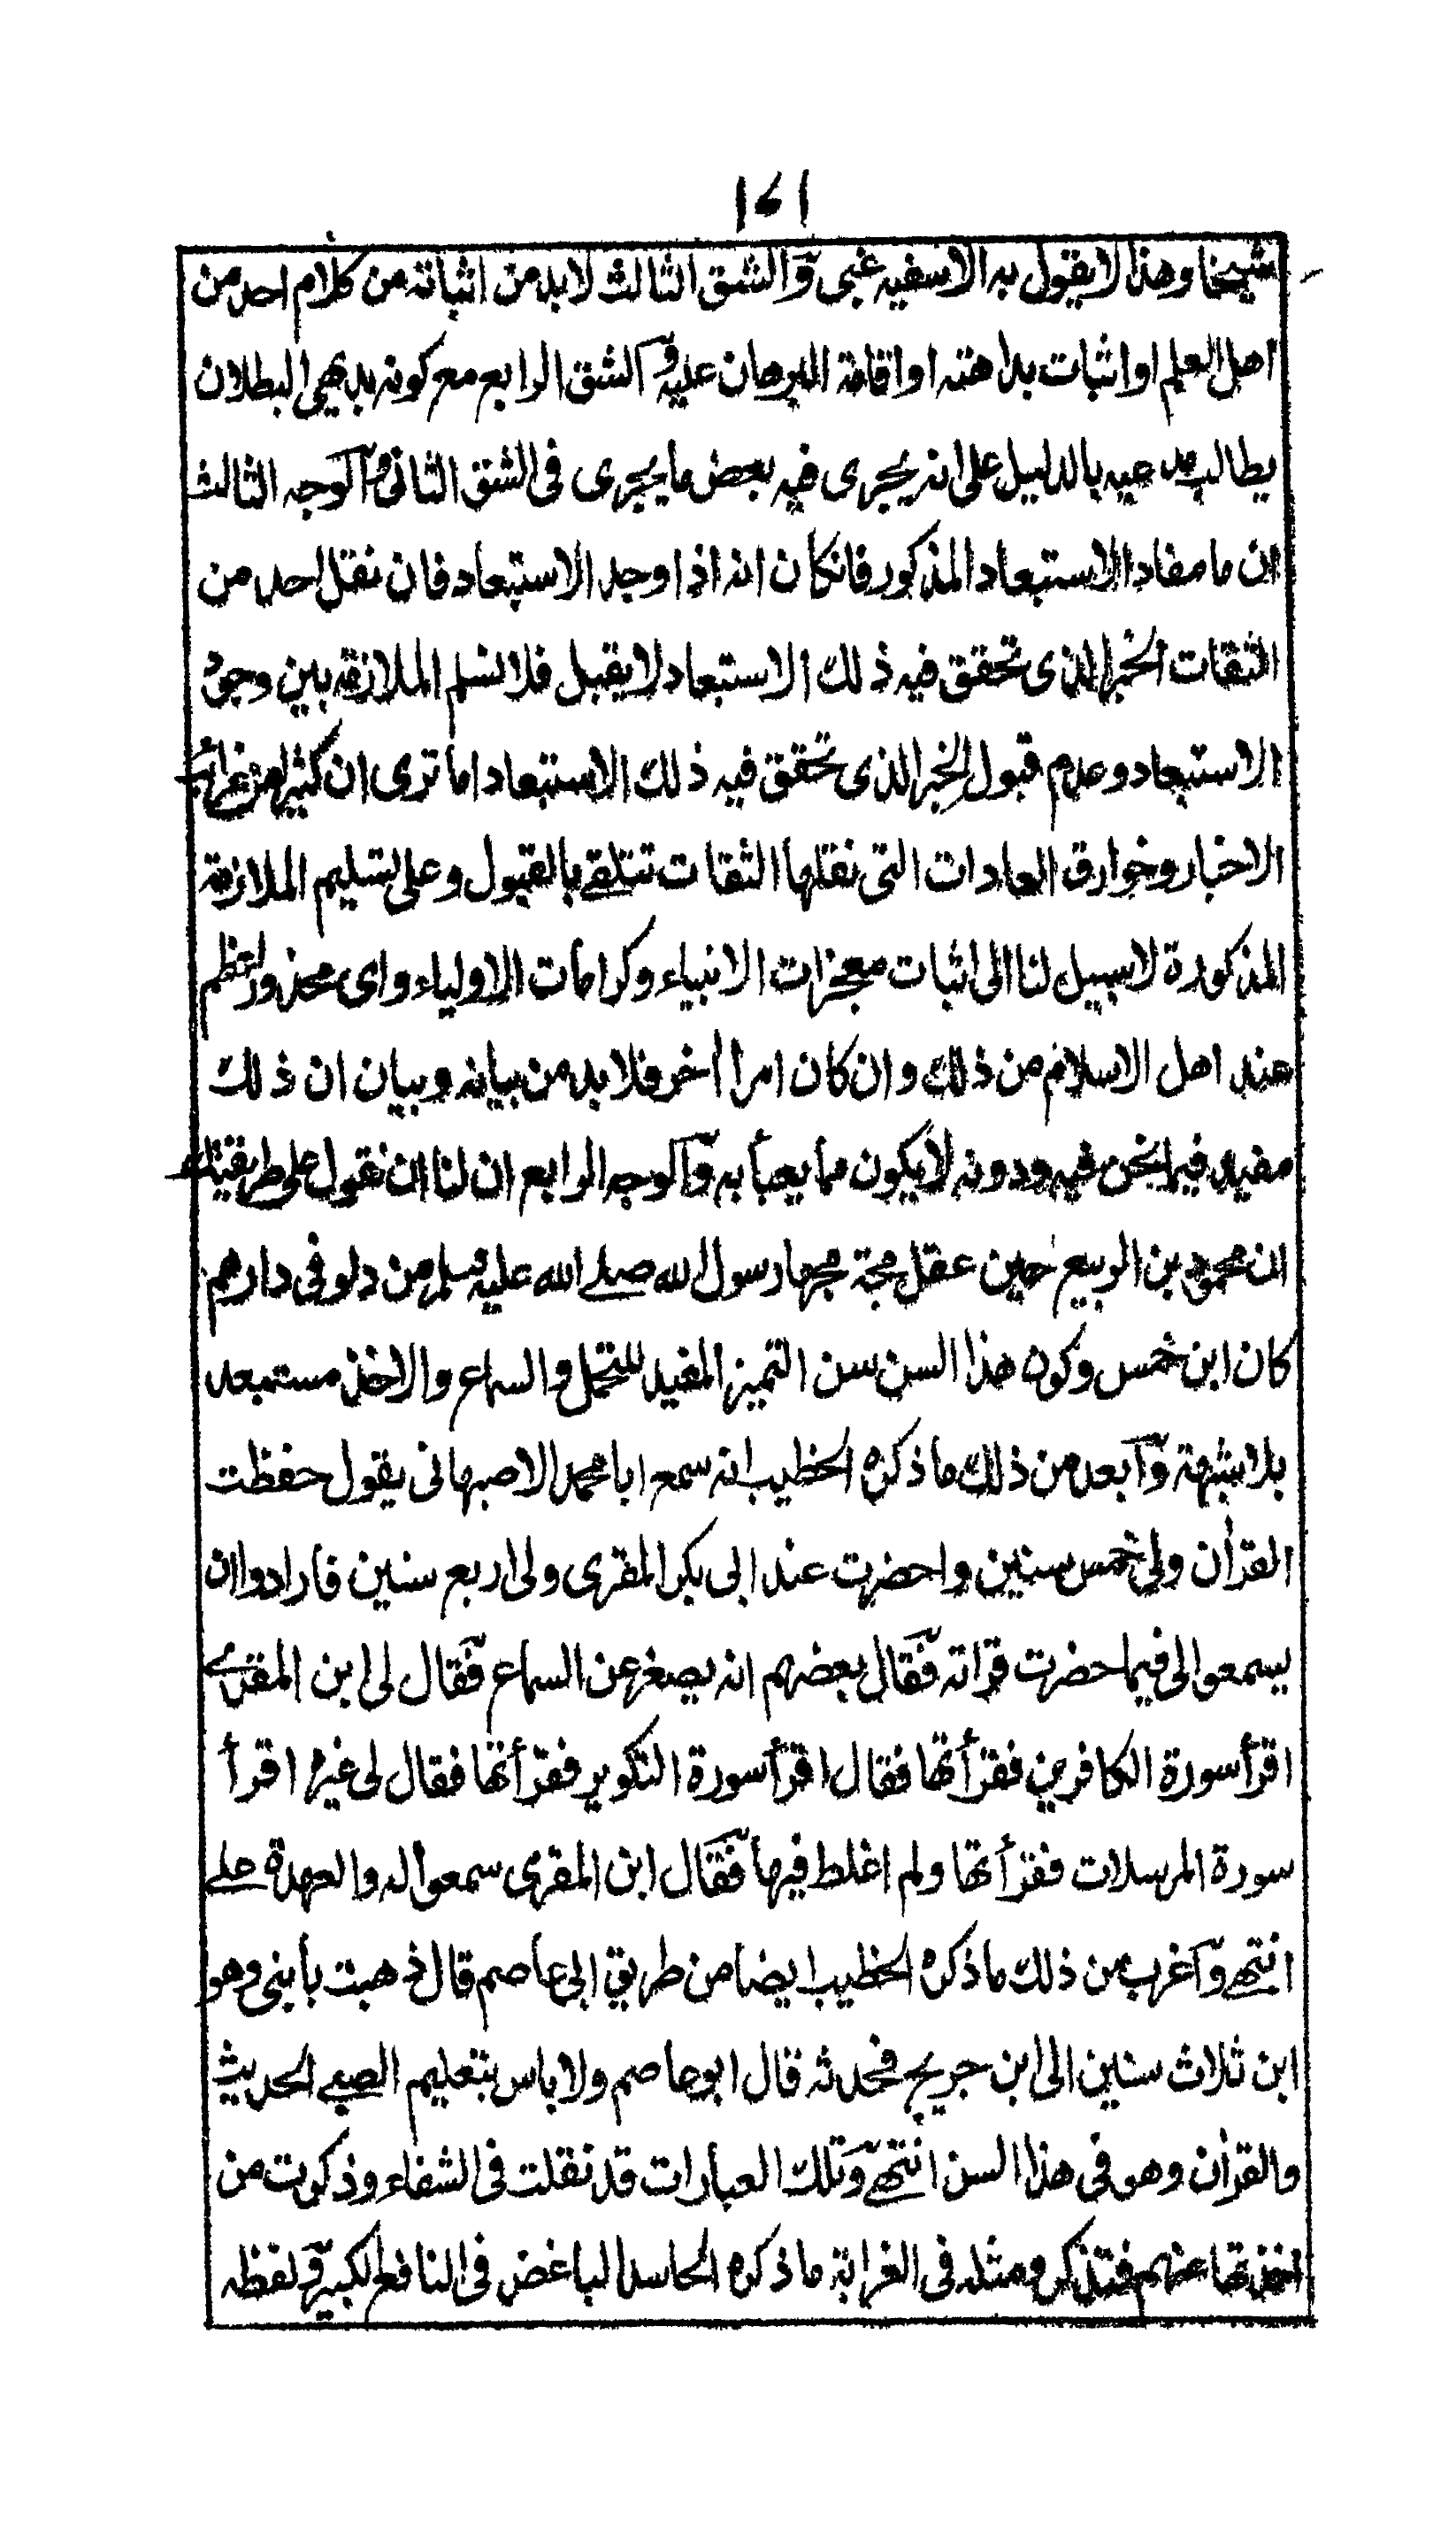 ١٤١
شيخا وهذا لا يقول به الا سفيه غبى وآلشق الثالث لا بد من اثباته من كلام احد من
اهل العلم او اثبات بداهته او اقامة البرهان عليه وآلشق الرابع مع كونه بديهى البطلان
يطالب مدعيه بالدليل على انه يجرى فيه بعض ما يجرى فى الشق الثانى وآلوجه الثالث
ان ما مفاد الاستبعاد المذكور فانكان انه اذا وجد الاستبعاد فان نقل احد من
الثقات الخبر الذى تحقق فيه ذلك الاستبعاد لا يقبل فلا نسلم الملازمة بين وجود
الاستبعاد وعدم قبول الخبر الذى تحقق فيه ذلك الاستبعاد اما ترى ان كثيرا من غرائب
الاخبار وخوارق العادات التى نقلها الثقات تتلقے بالقبول وعلى تسليم الملازمة
المذكورة لا سبيل لنا الى اثبات معجزات الانبياء وكرامات الاولياء واى محذور اعظم
عند اهل الاسلام من ذلك وان كان امرا أخر فلا بد من بيانه وبيان ان ذلك
مفيد فيما نحن فيه ودونه لا يكون مما يعبأ به وآلوجه الرابع ان لنا ان نقول على طريقتك
ان محمود بن الربيع حين عقل مجة مجها رسول الله صلے الله عليه وسلم من دلو فى دارهم
كان ابن خمس وكون هذا السن سن التميز المفيد للتحمل والسماع والاخذ مستبعد
بلا شبهة وآبعد من ذلك ما ذكره الخطيب انه سمع ابا محمد الاصبهانى يقول حفظت
القرأن ولى خمس سنين واحضرت عند ابى بكر المقرى ولى اربع سنين فارادوا ان
يسمعوا لى فيما حضرت قراته فقآل بعضهم انه يصغر عن السماع فقآل لى ابن المقرى
اقرأ سورة الكافرين فقرأتها فقال اقرأ سورة التكوير فقرأتها فقال لى غيره اقرأ
سورة المرسلات فقرأتها ولم اغلط فيها فقآل ابن المقرى سمعوا له والعهدة علے
انتهے وآغرب من ذلك ما ذكره الخطيب ايضا من طريق ابى عاصم قال ذهبت بأبنى وهو
ابن ثلاث سنين الى ابن جريج فحدثه قال ابو عاصم ولا باس بتعليم الصبے الحديث
والقرأن وهو فى هذا السن انتهے وتلك العبارات قد نقلت فى الشفاء وذكرت من
اخذتها عنهم فتذكر ومثله فى الغرابة ما ذكره الحاسد الباغض فى النافع الكبير ولفظه